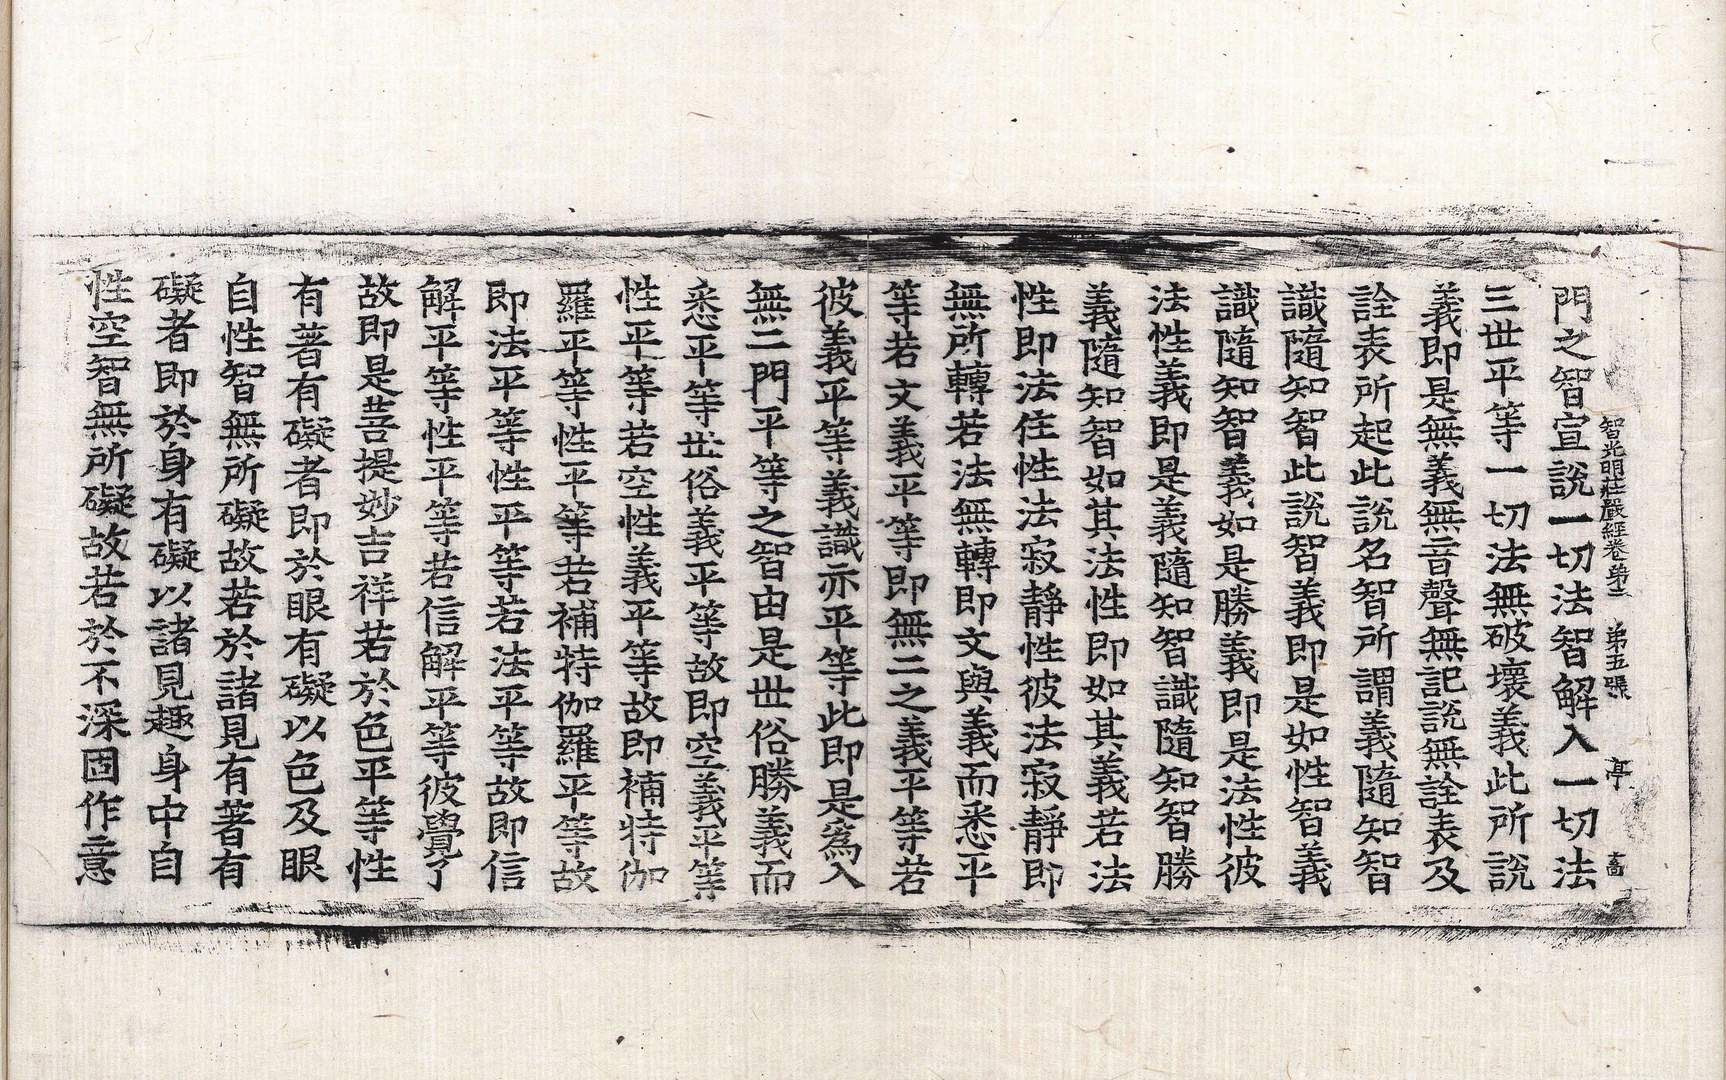 智光明莊嚴經卷苐 苐五張 亭
門之智宣說一切法智解入一切法
三世平等一切法無破壞義此所說
義即是無義無音聲無記說無詮表及
詮表所起此說名智所謂義隨知智
識隨知智此說智義即是如性智義
識隨知智義如是勝義即是法性彼
法性義即是義隨知智識隨知智勝
義隨知智如其法性即如其義若法
性即法住性法寂靜性彼法寂靜即
無所轉若法無轉即文與義而悉平
等若文義平等即無二之義平等若
彼義平等義識亦平等此即是爲入
無二門平等之智由是世俗勝義而
悉平等世俗義平等故即空義平等
性平等若空性義平等故即補特伽
羅平等性平等若補特伽羅平等故
即法平等性平等若法平等故即信
解平等性平等若信解平等彼覺了
故即是菩提妙吉祥若於色平等性
有著有礙者即於眼有礙以色及眼
自性智無所礙故若於諸見有著有
礙者即於身有礙以諸見趣身中自
性空智無所礙故若於不深固作意